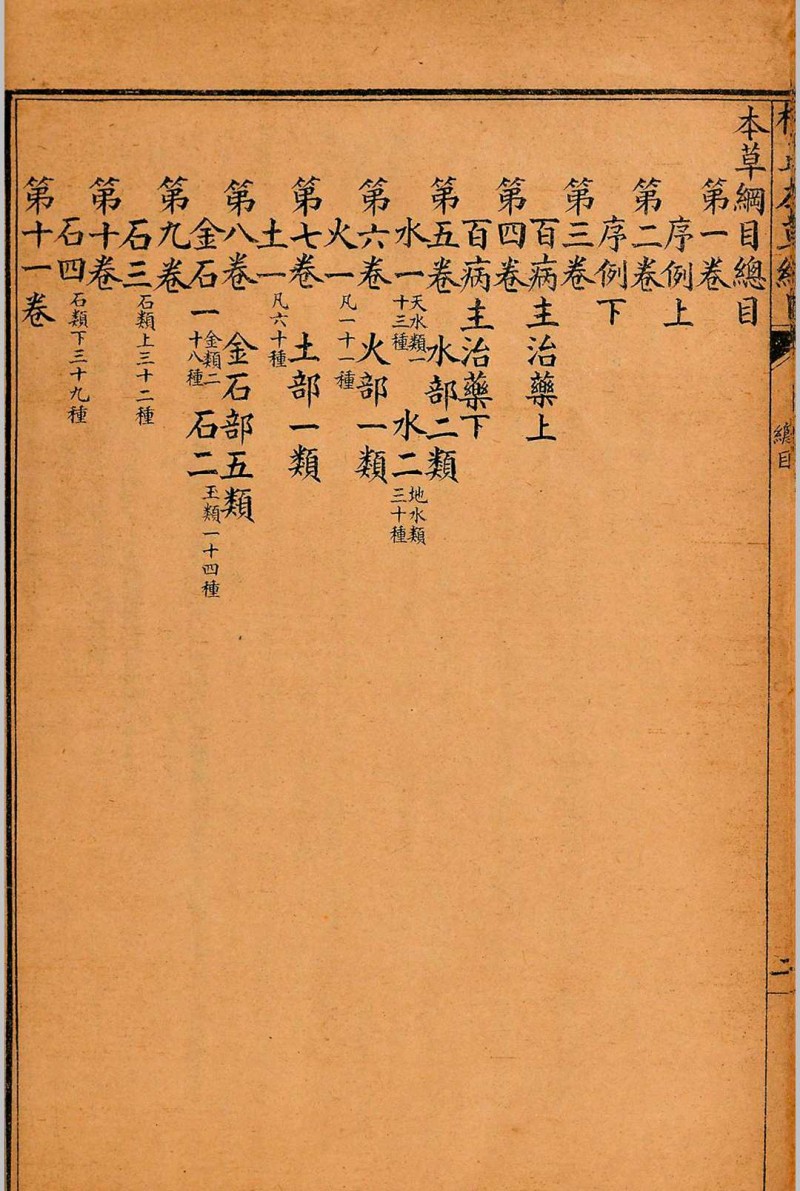 本草綱目總目
第一卷
序例上
第二卷
序例下
第三卷
百病主治藥上
第四卷
百病主治藥下
第五卷 水部二類
水一 天水類一十三種 水二 地水類三十種
第六卷 火部一類
火一 凡一十一種
第七卷 土部一類
土一 凡六十種
第八卷 金石部五類
金石一 金類二十八種 石二 玉類一十四種
第九卷
石三 石類上三十二種
第十卷
石四 石類下三十九種
第十一卷
總目
二